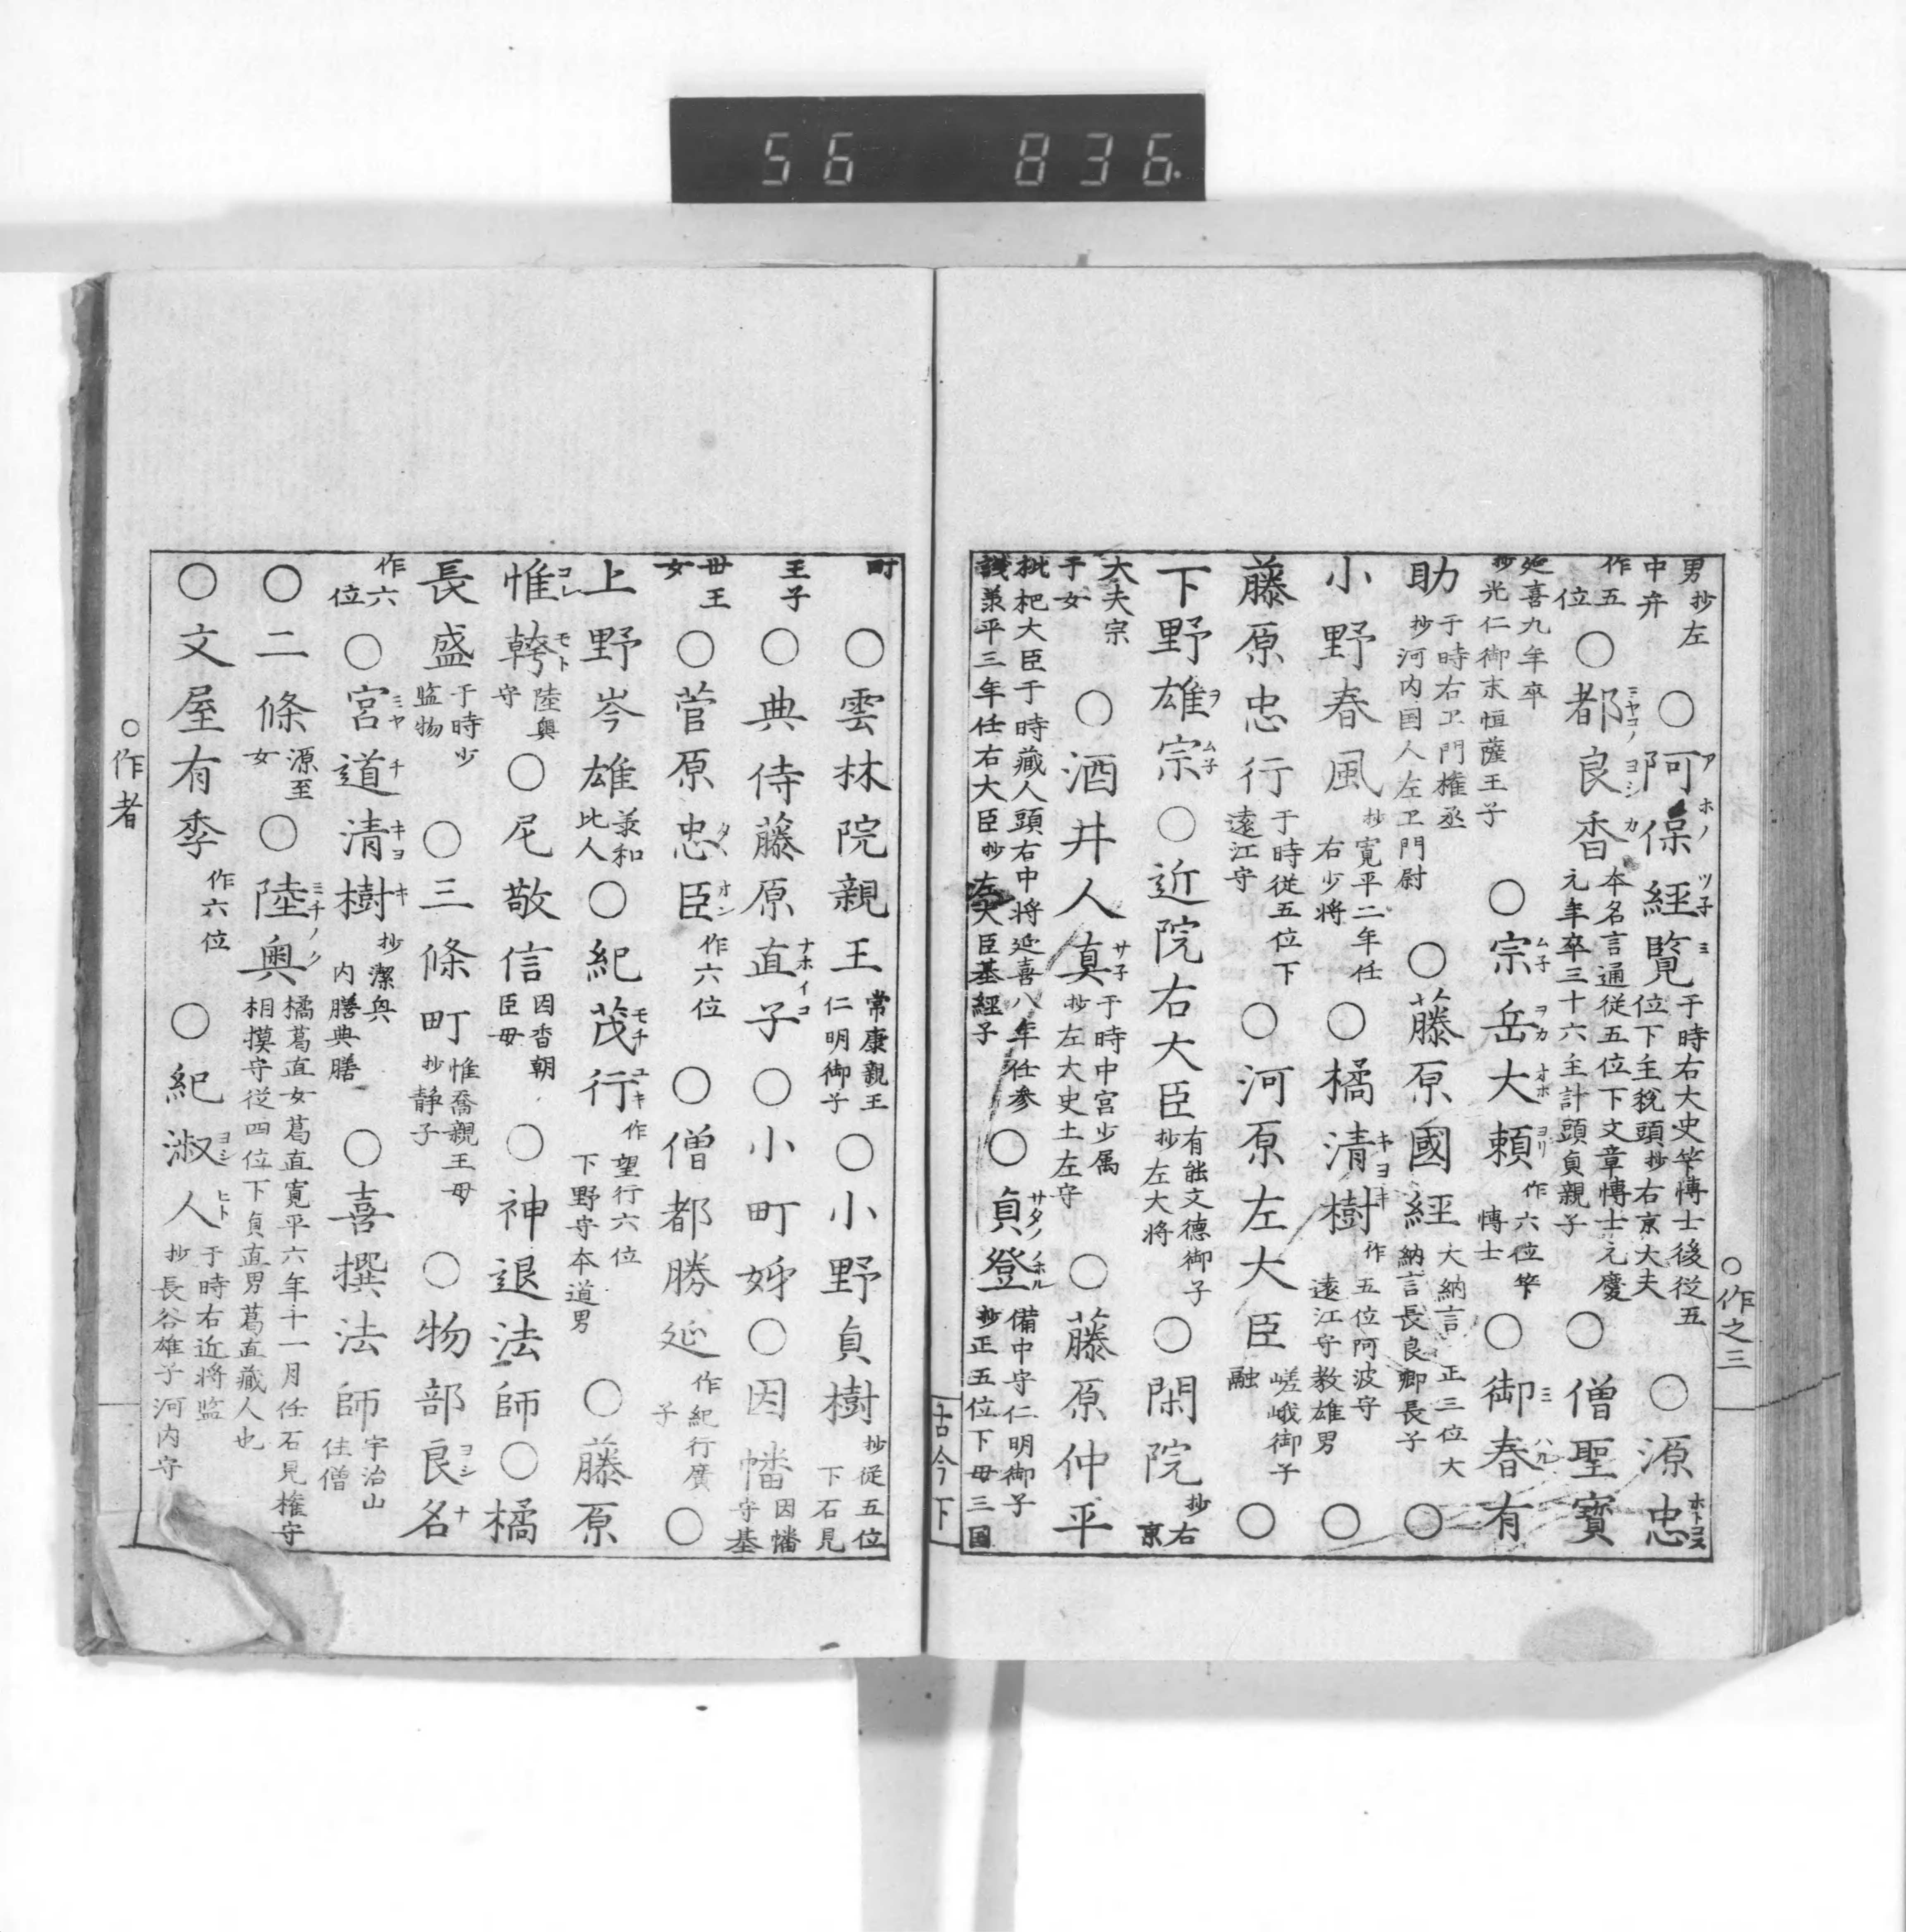 56 836.
○作之三
男抄左中弁 ○阿保経覧 于時右大史筭博士後従五位下主税頭抄右京大夫 ○源忠
作五位 ○都良香 本名言通従五位下文章博士元慶元年卒三十六主計頭貞親子 ○僧聖寳
延喜九年卒抄光仁御末恒薩王子 ○宗岳大頼 作六位筭博士 ○御春有
助 于時右卫門権丞抄河内国人左卫門尉 ○藤原國経 大納言正三位大納言長良卿長子 ○
小野春風 抄寛平二年任右少将 ○橘清樹 作五位阿波守遠江守教雄男 ○
藤原忠行 于時従五位下遠江守 ○河原左大臣 嵯峨御子融 ○
下野雄宗 ○近院右大臣 有能文徳御子抄左大将 ○閑院 抄右京
大夫宗于女 ○酒井人真 于時中宮少属抄左大史土左守 ○藤原仲平
枇杷大臣于時藏人頭右中将延喜八年任参議羕平三年任右大臣抄左大臣基経子 ○貞登 備中守仁明御子抄正五位下母三国
古今下
町 ○雲林院親王 常康親王仁明御子 ○小野貞樹 抄従五位下石見
王子 ○典侍藤原直子 ○小町姊 ○因幡 因幡守基
世王女 ○菅原忠臣 作六位 ○僧都勝延 作紀行廣子 ○
上野岑雄 羕和比人 ○紀茂行 作望行六位下野守本道男 ○藤原
惟幹 陸奥守 ○尼敬信 因香朝臣母 ○神退法師 ○橘
長盛 于時少監物 ○三條町 惟喬親王母抄静子 ○物部良名
作六位 ○宮道清樹 抄潔興内膳典膳 ○喜撰法師 宇治山住僧
○二條 源至女 ○陸奥 橘葛直女葛直寛平六年十一月任石見権守相摸守従四位下貞直男葛直藏人也
○文屋有季 作六位 ○紀淑人 于時右近将監抄長谷雄子河内守
○作者